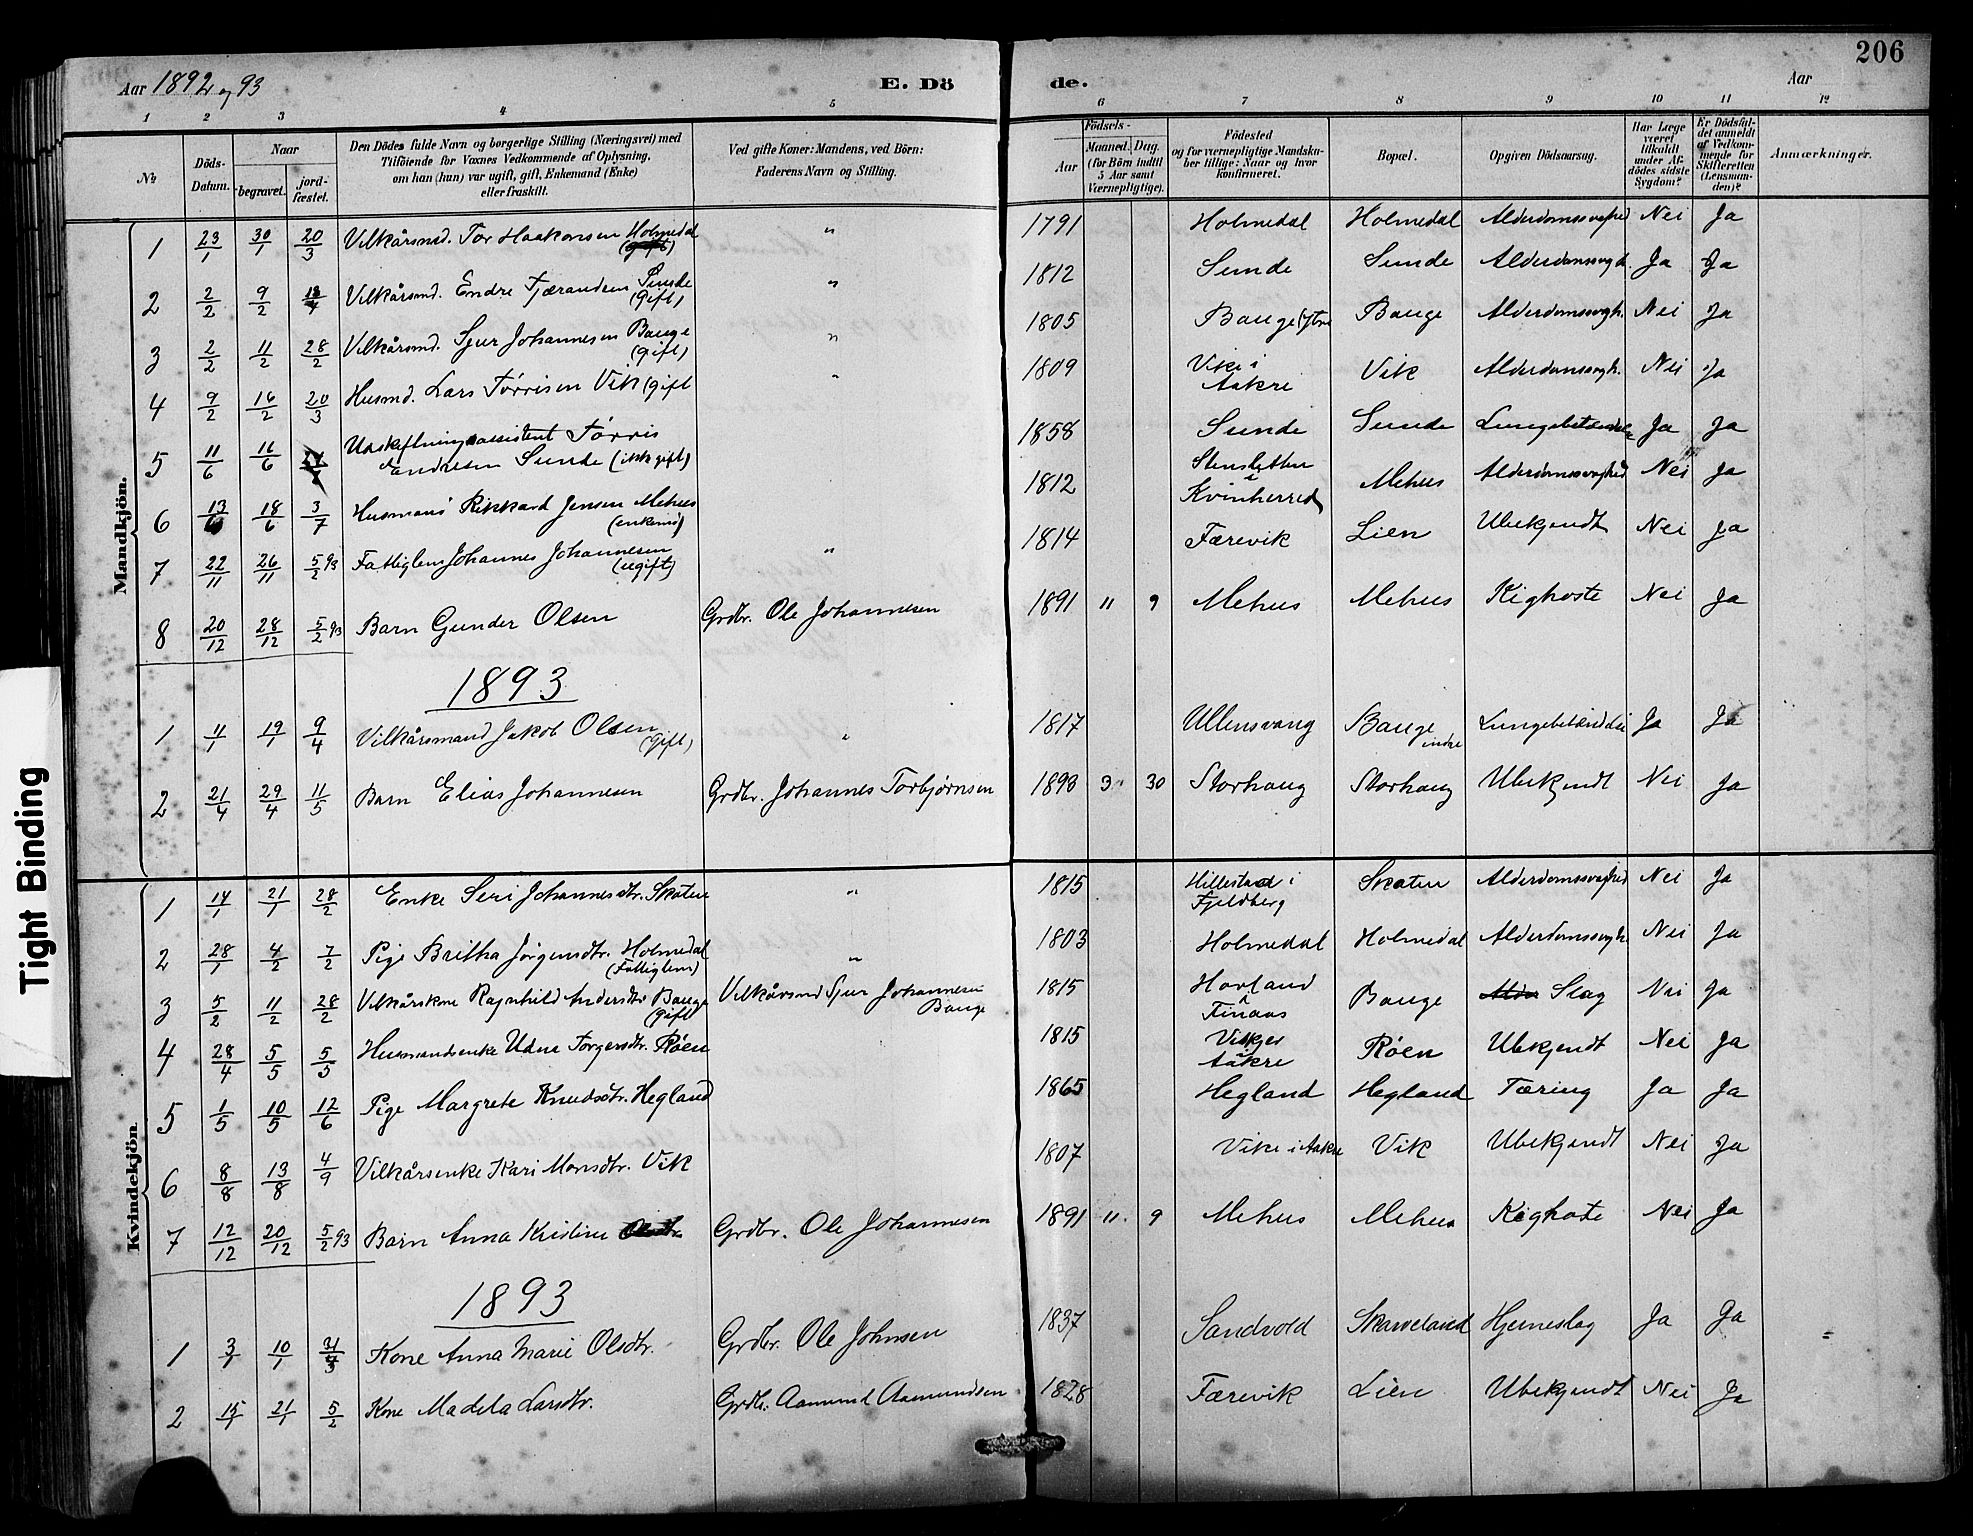 206
Aar 1892 og 93
E. Dö
de.
Aar
1 2 3 4 5 6 7 8 9 10 11 12
№
Döds-Datum.
Naar
begravet.
jord-fæstet.
Den Dödes fulde Navn og borgerlige Stilling (Næringsvei) med
Tilföiende for Voxnes Vedkommende af Oplysning,
om han (hun) var ugift, gift, Enkemand (Enke)
eller fraskilt.
Ved gifte Koner: Mandens, ved Börn:
Faderens Navn og Stilling.
Födsels-
Aar
Maaned. Dag.
(for Börn indtil
5 Aar samt
Værnepligtige).
Födested
og for værnepligtige Mandsku-
ber tillige: Naar og hvor
konfirmeret.
Bopæl.
Opgiven Dödsaarsag.
Har Læge
været
tilkaldt
under Af-
dödes sidste
Sygdom?
Er Dödsfal-
det anmeldt
af Vedkom-
mende for
Skifteretten
(Lensman-
den)?
Anmærkninger.
Mandkjön.
1 23/1 30/1 20/3 Vilkårsmd. Tor Haakonsen Holmedal (gift) " 1791 Holmedal Holmedal Alderdomssvaghed Nei Ja
2 2/2 9/2 Vilkårsmd. Endre Fjærandsen Sunde (gift) " 1812 Sunde Sunde Alderdomssvagh. Ja Ja
3 2/2 11/2 28/2 Vilkårsmd. Sjur Johannesen Bauge (gift) " 1805 Bauge (ytre Bauge Alderdomssvagh. Nei Ja
4 9/2 16/2 20/3 Husmd. Lars Tørrisen Vik (gift " 1809 Vike i Aakre Vik Alderdomssvagh. Nei Ja
5 11/6 16/6 Udskiftningsassistent Tørris Endresen Sunde (ikke gift) 1858 Sunde Sunde Lungebetændelse Ja Ja
6 13/6 18/6 3/7 Husmand Rikkard Jensen Mehus (enkem) 1812 Stensletten i Kvinherred Mehus Alderdomssvaghed Nei Ja
7 22/11 26/11 5/2 93 Fattiglem Johannes Johannesen (ugift) " 1814 Færevik Lien Ubekjendt Nei Ja
8 20/12 28/12 5/2 93 Barn Gunder Olsen Grdbr. Ole Johannesen 1891 11 9 Mehus Mehus Kighoste Nei Ja
1893
1 11/1 19/1 9/4 Vilkårsmand Jakob Olsen (gift) " 1817 Ullensvang Bauge indre Lungebetændelse Ja Ja
2 21/4 29/4 11/5 Barn Elias Johannesen Grdbr. Johannes Torbjørnsen 1893 3 30 Storhaug Storhaug Ubekjendt Nei Ja
Kvindekjön
1 14/1 21/1 28/2 Enke Seri Johannesdtr. Skaten " 1815 Hillestad i Fjeldberg Skaten Alderdomssvaghed Nei Ja
2 28/1 4/2 7/2 Pige Britha Jørgensdtr. Holmedal (Fattiglem) " 1803 Holmedal Holmedal Alderdomssvagh. Nei Ja
3 5/2 11/2 28/2 Vilkårskone Ragnhild Andersdtr Bauge (gift Vilkårsmd Sjur Johannesen Bauge 1815 Hovland i Finaas Bauge Alder Slag Nei Ja
4 28/4 5/5 5/5 Husmandsenke Udne Torgersdtr. Røen 1815 i Aakre Røen Ubekjendt Nei Ja
5 1/5 10/5 12/6 Pige Margrete Knudsdtr. Hegland 1865 Hegland Hegland Tæring Ja Ja
6 8/8 13/8 4/9 Vilkårsenke Kari Monsdtr. Vik 1807 Vike i Aakre Vik Ubekjendt Nei Ja
7 12/12 20/12 5/2 93 Barn Anna Kristine Olsdtr. Grdbr. Ole Johannesen 1891 11 9 Mehus Mehus Kighoste Nei Ja
1893
1 3/1 10/1 Kone Anna Marie Olsdtr. Grdbr. Ole Johnsen 1837 Sandvold Skarveland Hjerneslag Ja Ja
2 15/1 21/1 5/2 Kone Madela Larsdtr. Grdbr. Aamund Aamundsen 1828 Færevik Lien Ubekjendt Nei Ja
Tight Binding